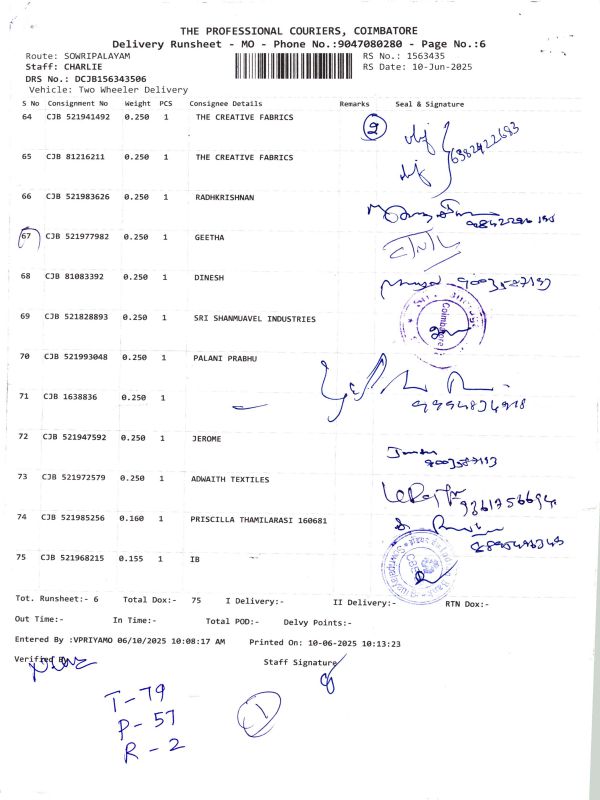 THE PROFESSIONAL COURIERS, COIMBATORE
Delivery Runsheet - MO - Phone No.:9047080280 - Page No.:6
Route: SOWRIPALAYAM RS No.: 1563435
Staff: CHARLIE RS Date: 10-Jun-2025
DRS No.: DCJB156343506
Vehicle: Two Wheeler Delivery
S No Consignment No Weight PCS Consignee Details Remarks Seal & Signature
64 CJB 521941492 0.250 1 THE CREATIVE FABRICS 2
6382422683
65 CJB 81216211 0.250 1 THE CREATIVE FABRICS
66 CJB 521983626 0.250 1 RADHKRISHNAN
67 CJB 521977982 0.250 1 GEETHA
68 CJB 81083392 0.250 1 DINESH
69 CJB 521828893 0.250 1 SRI SHANMUAVEL INDUSTRIES
Coimbatore
70 CJB 521993048 0.250 1 PALANI PRABHU
71 CJB 1638836 0.250 1
9994834918
72 CJB 521947592 0.250 1 JEROME
73 CJB 521972579 0.250 1 ADWAITH TEXTILES
74 CJB 521985256 0.160 1 PRISCILLA THAMILARASI 160681
75 CJB 521968215 0.155 1 IB
Tot. Runsheet:- 6 Total Dox:- 75 I Delivery:- II Delivery:- RTN Dox:-
Out Time:- In Time:- Total POD:- Delvy Points:-
Entered By :VPRIYAMO 06/10/2025 10:08:17 AM Printed On: 10-06-2025 10:13:23
Verified By Staff Signature
T-79
P-57
R-2